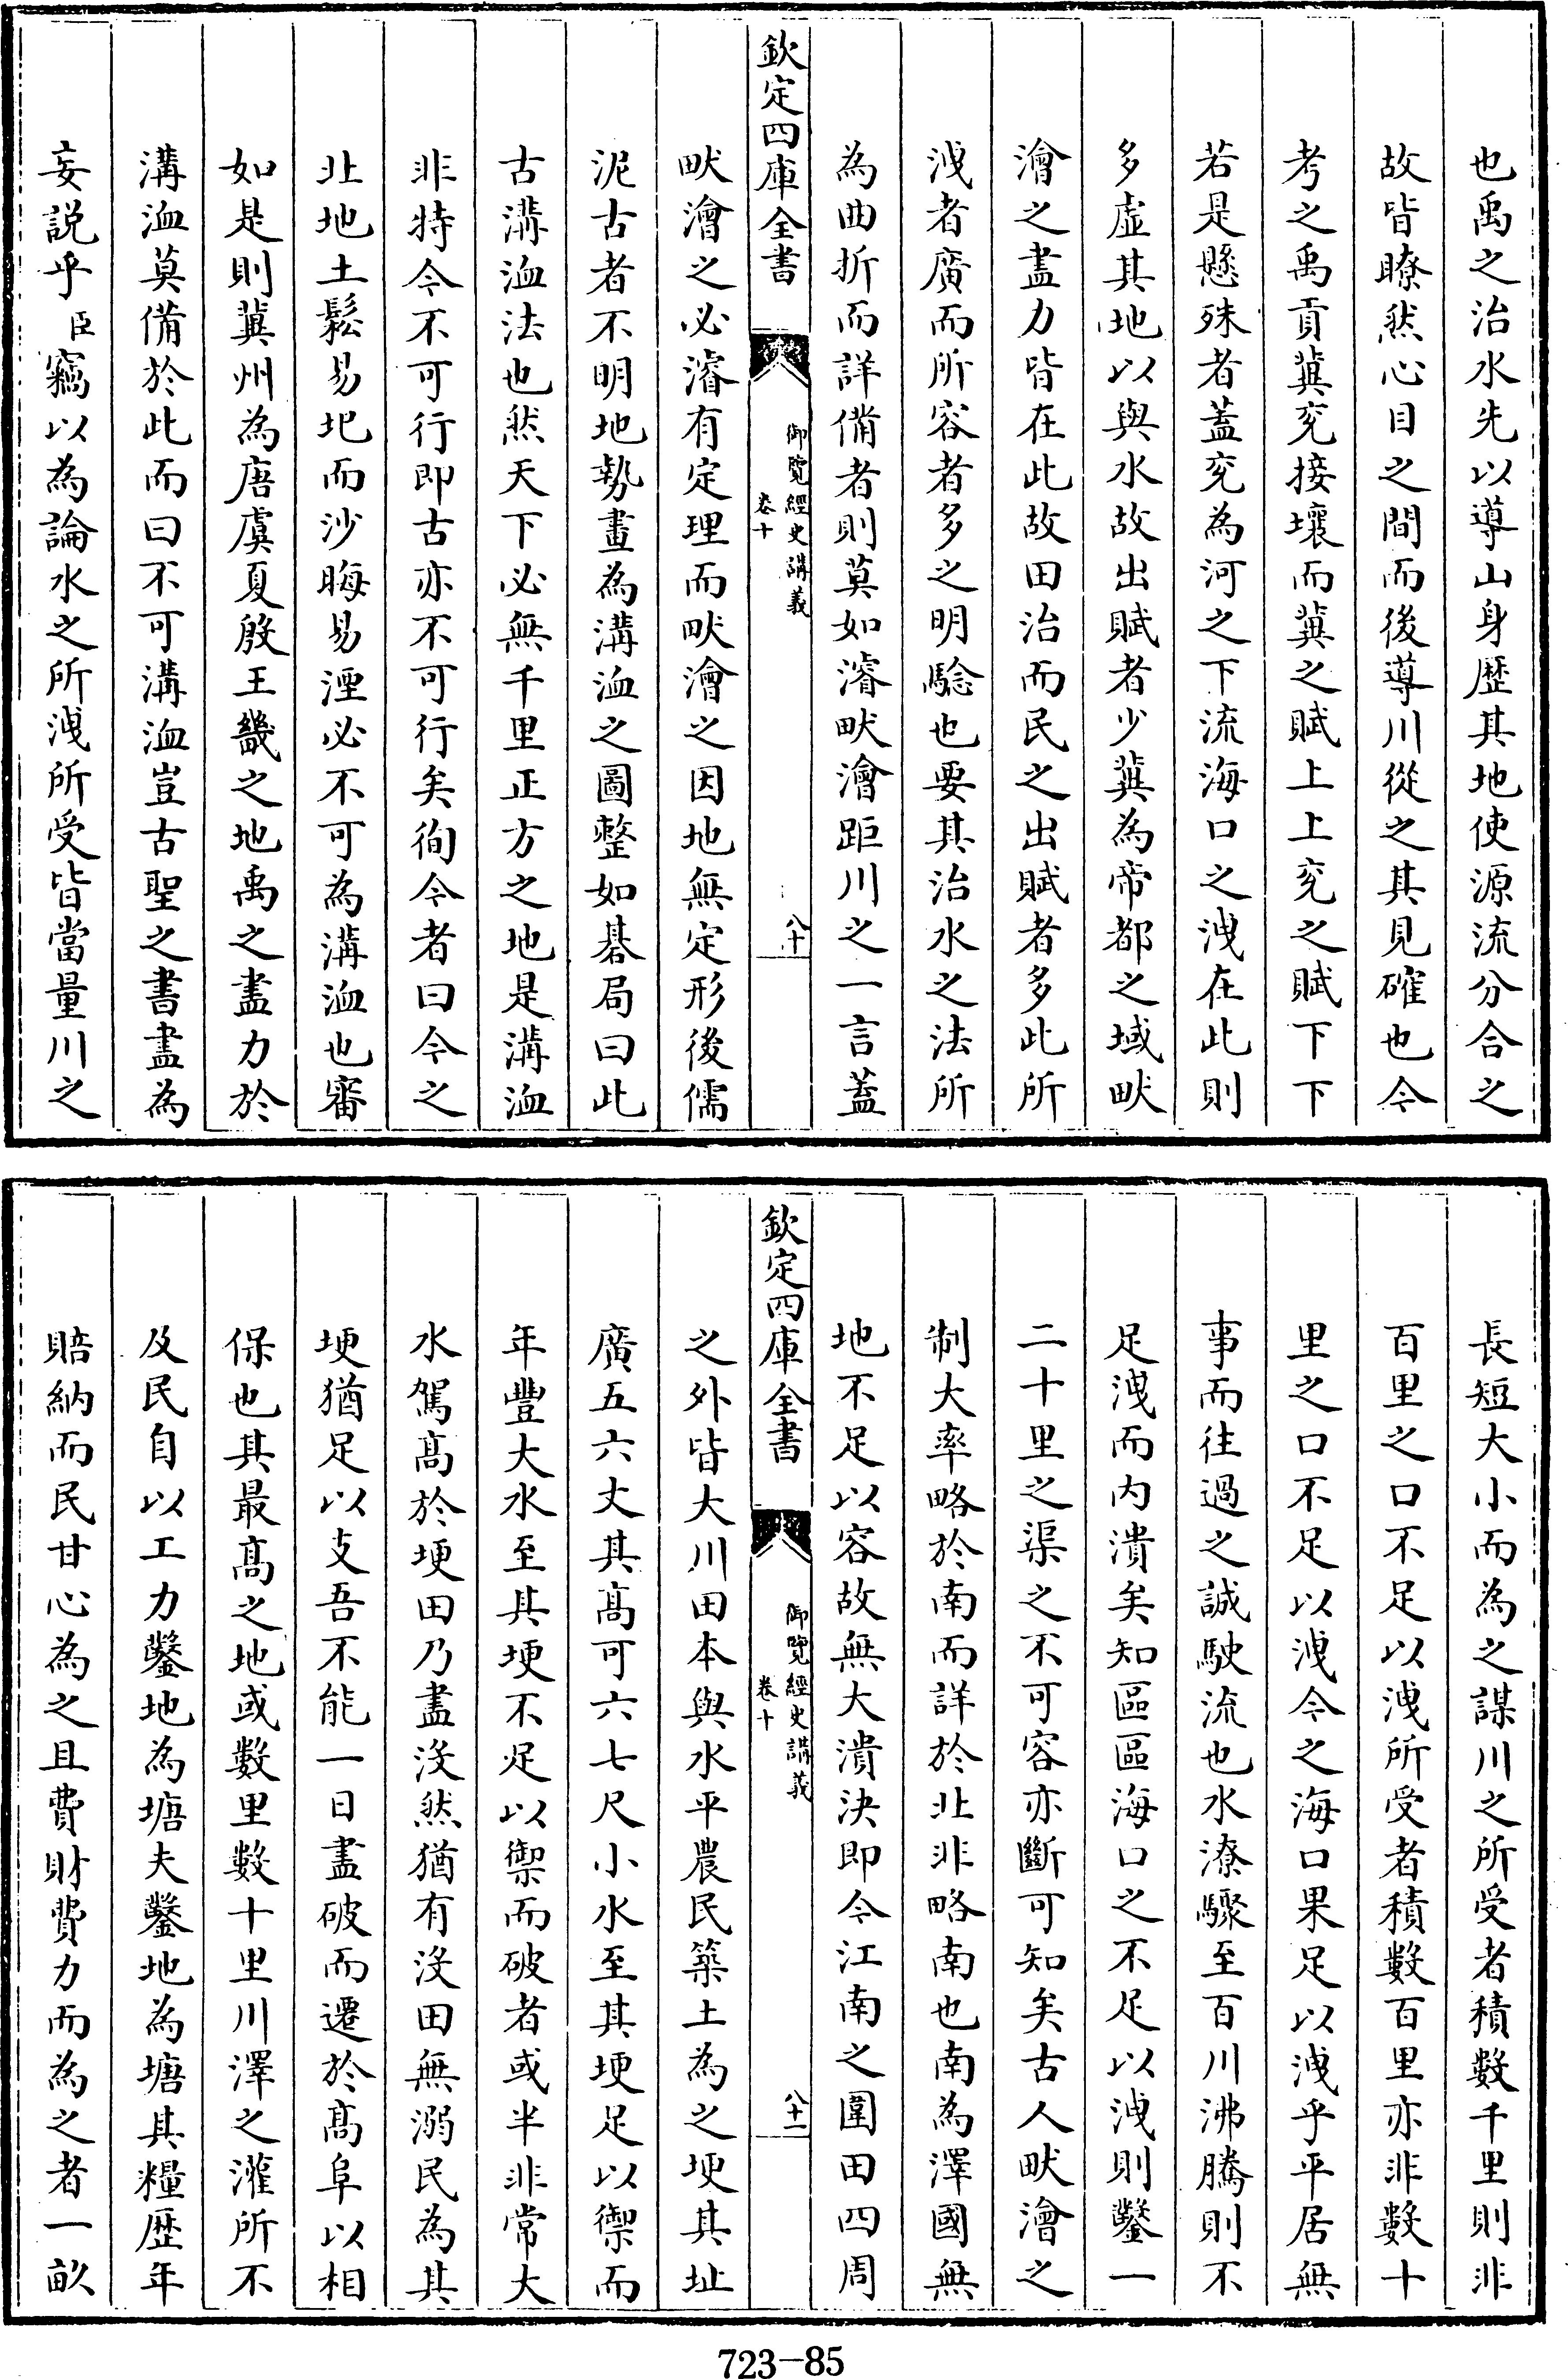 也禹之治水先以導山身歷其地使源流分合之
故皆瞭然心目之間而後導川從之其見確也今
考之禹貢冀兖接壤而冀之賦上上兖之賦下下
若是懸殊者蓋兖為河之下流海口之洩在此則
多虛其地以與水故出賦者少冀為帝都之域畎
澮之盡力皆在此故田治而民之出賦者多此所
洩者廣而所容者多之明驗也要其治水之法所
為曲折而詳備者則莫如濬畎澮距川之一言蓋
欽定四庫全書
御覽經史講義
卷十
八十
畎澮之必濬有定理而畎澮之因地無定形後儒
泥古者不明地勢畫為溝洫之圖整如碁局曰此
古溝洫法也然天下必無千里正方之地是溝洫
非特今不可行即古亦不可行矣徇今者曰今之
北地土鬆易圯而沙晦易湮必不可為溝洫也審
如是則冀州為唐虞夏殷王畿之地禹之盡力於
溝洫莫備於此而曰不可溝洫豈古聖之書盡為
妄説乎臣竊以為論水之所洩所受皆當量川之
長短大小而為之謀川之所受者積數千里則非
百里之口不足以洩所受者積數百里亦非數十
里之口不足以洩今之海口果足以洩乎平居無
事而往過之誠駛流也水潦驟至百川沸騰則不
足洩而内潰矣知區區海口之不足以洩則鑿一
二十里之渠之不可容亦斷可知矣古人畎澮之
制大率略於南而詳於北非略南也南為澤國無
地不足以容故無大潰決即今江南之圍田四周
欽定四庫全書
御覽經史講義
卷十
八十一
之外皆大川田本與水平農民築土為之埂其址
廣五六丈其髙可六七尺小水至其埂足以禦而
年豐大水至其埂不足以禦而破者或半非常大
水駕髙於埂田乃盡沒然猶有沒田無溺民為其
埂猶足以支吾不能一日盡破而遷於髙阜以相
保也其最髙之地或數里數十里川澤之灌所不
及民自以工力鑿地為塘夫鑿地為塘其糧歴年
賠納而民甘心為之且費財費力而為之者一畝
723-85